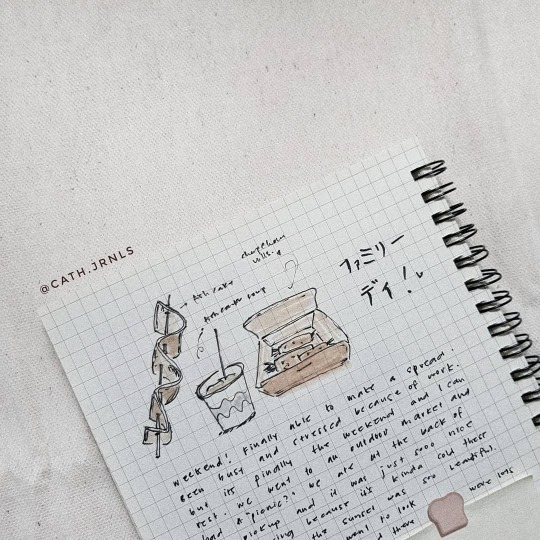 @CATH.JRNLS
fish cake
fish cake soup
ファミリー
デイ!
weekend! Finally able to make a spread.
been busy and stressed because of work.
but its finally the weekend and I can
rest. we went to an outdoor market and
had a "picnic?" we ate at the back of
pickup and it was just sooo nice
because it's kinda cold these
the sunset was soo beautiful.
want to look
there were lots